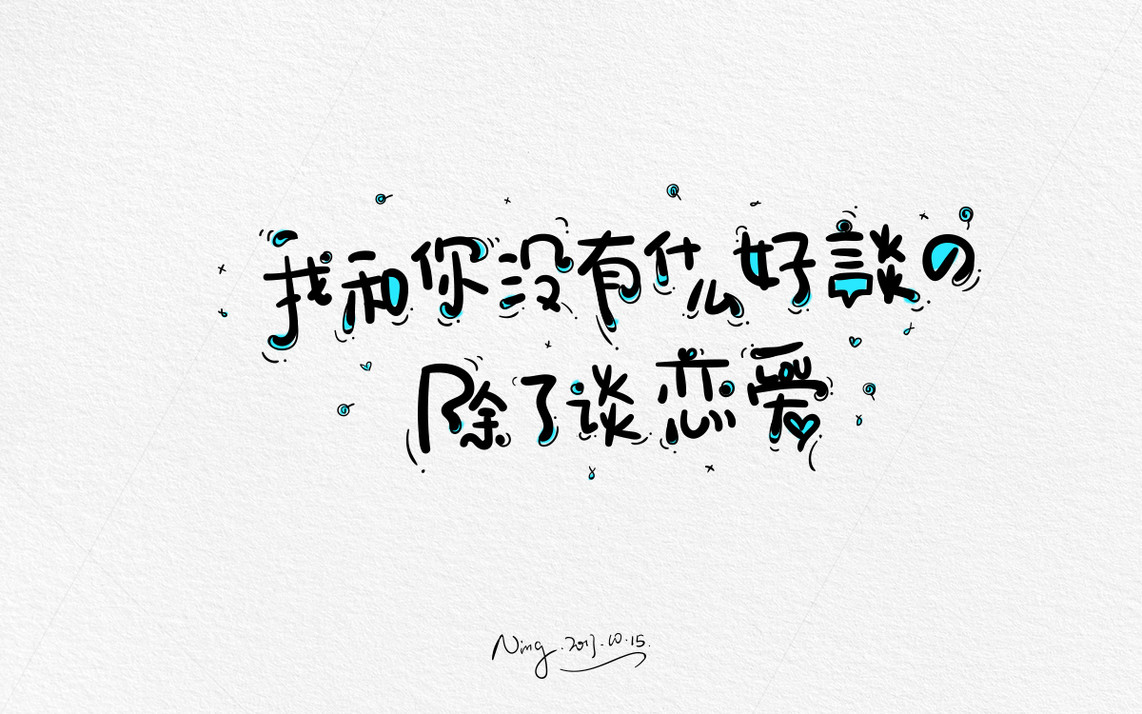 我和你没有什么好談の
除了谈恋爱
LOU
Ning.2017.10.15.